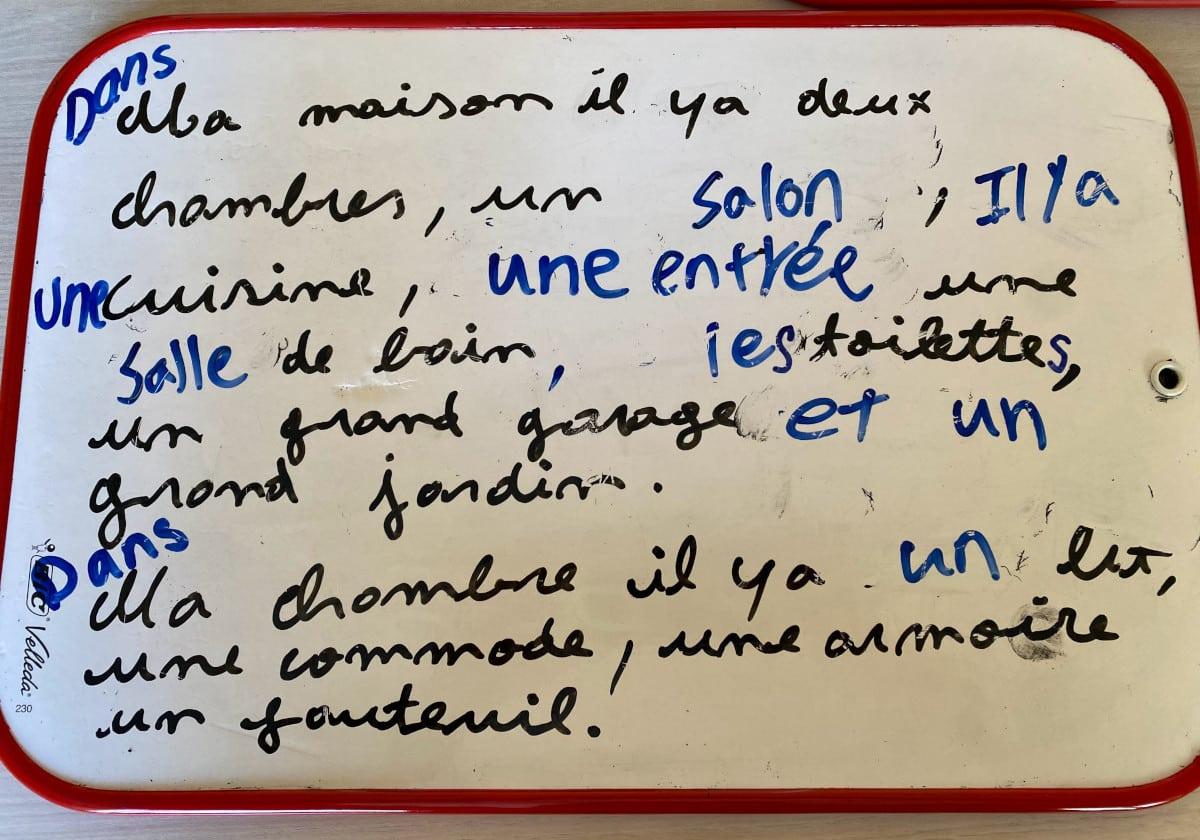 Dans
Ma maison il ya deux
chambres, un salon, Il Ya
une cuisine, une entrée une
salle de bain, les toilettes,
un grand garage et un
grand jardin.
Dans
Ma chambre il ya un lit,
une commode, une armoire
un fauteuil.
BIC
Velleda
230